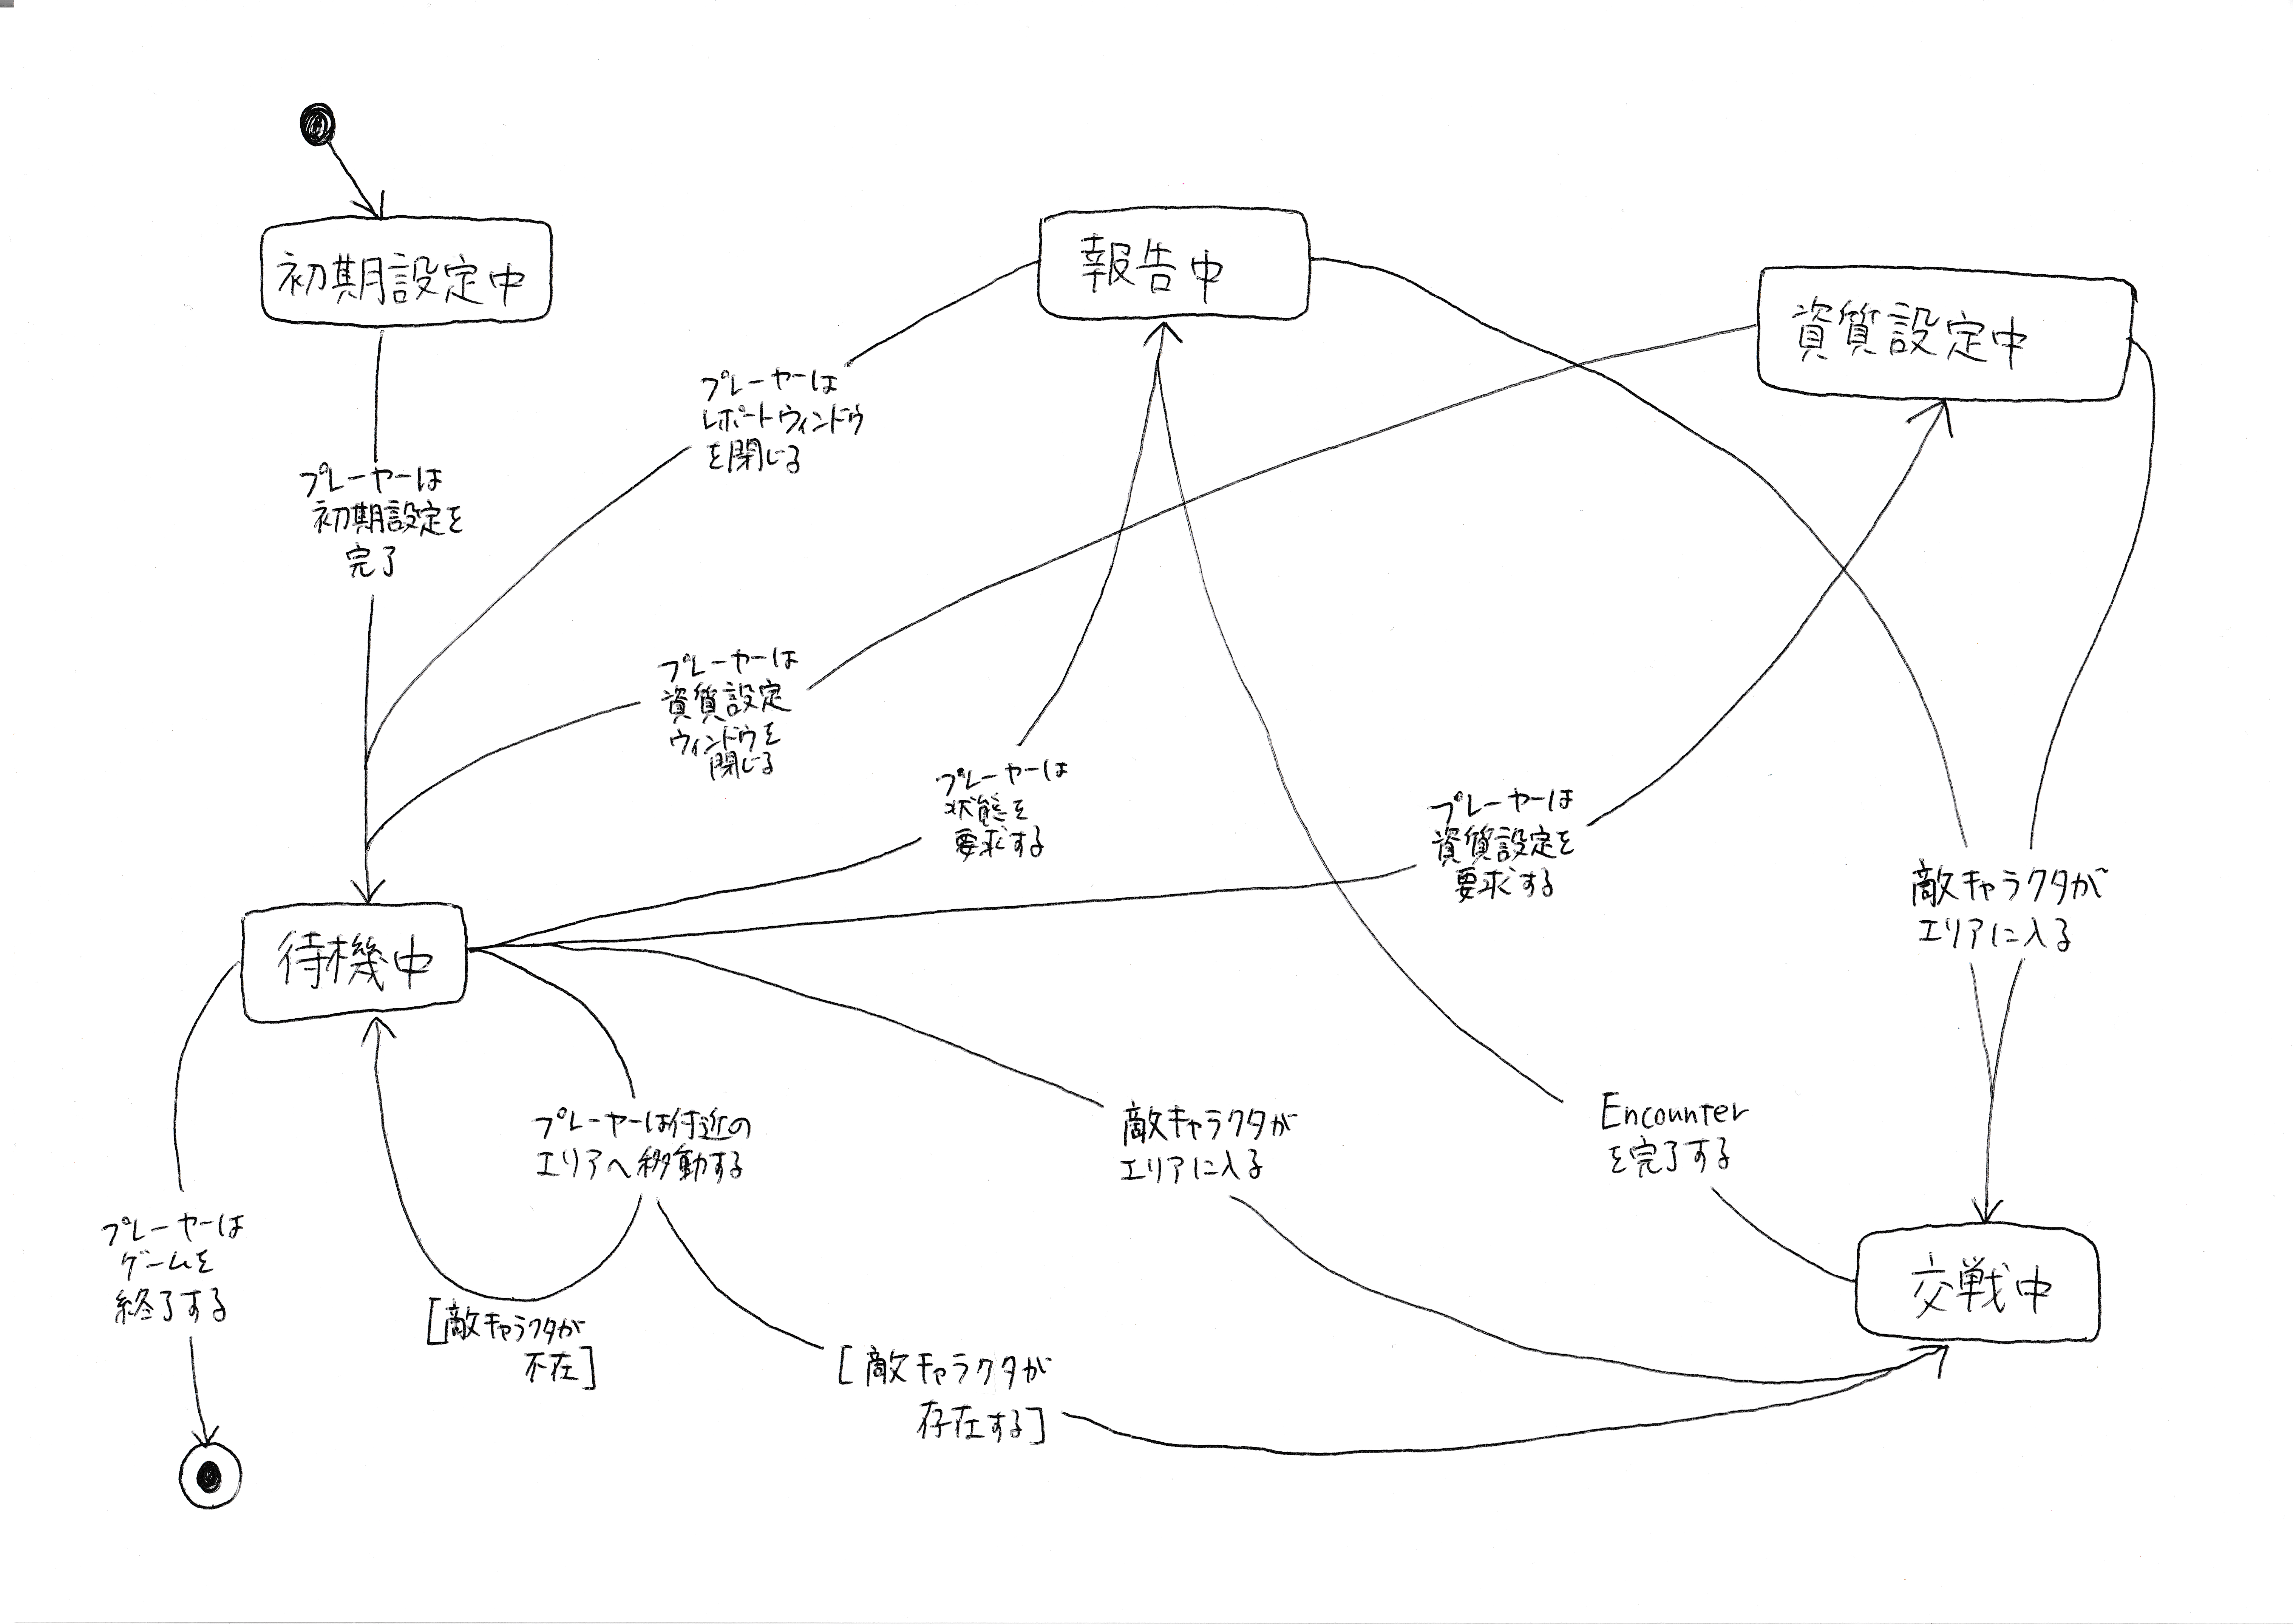 初期設定中
報告中
資質設定中
プレーヤーは
レポートウィンドウ
を閉じる
プレーヤーは
初期設定を
完了
プレーヤーは
資質設定
ウィンドウを
閉じる
プレーヤーは
状態を
要求する
プレーヤーは
資質設定を
要求する
敵キャラクタが
エリアに入る
待機中
プレーヤーは付近の
エリアへ移動する
敵キャラクタが
エリアに入る
Encounter
を完了する
プレーヤーは
ゲームを
終了する
[敵キャラクタが
不在]
[敵キャラクタが
存在する]
交戦中